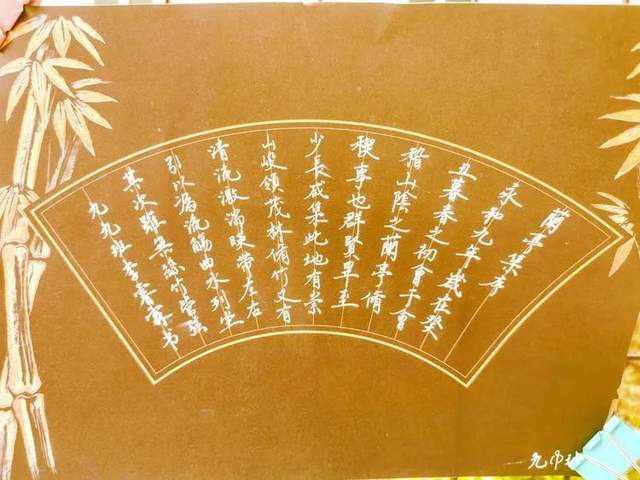 蘭亭集序
永和九年歲在癸
丑暮春之初會于會
稽山陰之蘭亭脩
稧事也群賢畢至
少長咸集此地有崇
山峻領茂林脩竹又有
清流激湍映帶左右
引以為流觴曲水列坐
其次雖無絲竹管弦
九九班李霖书